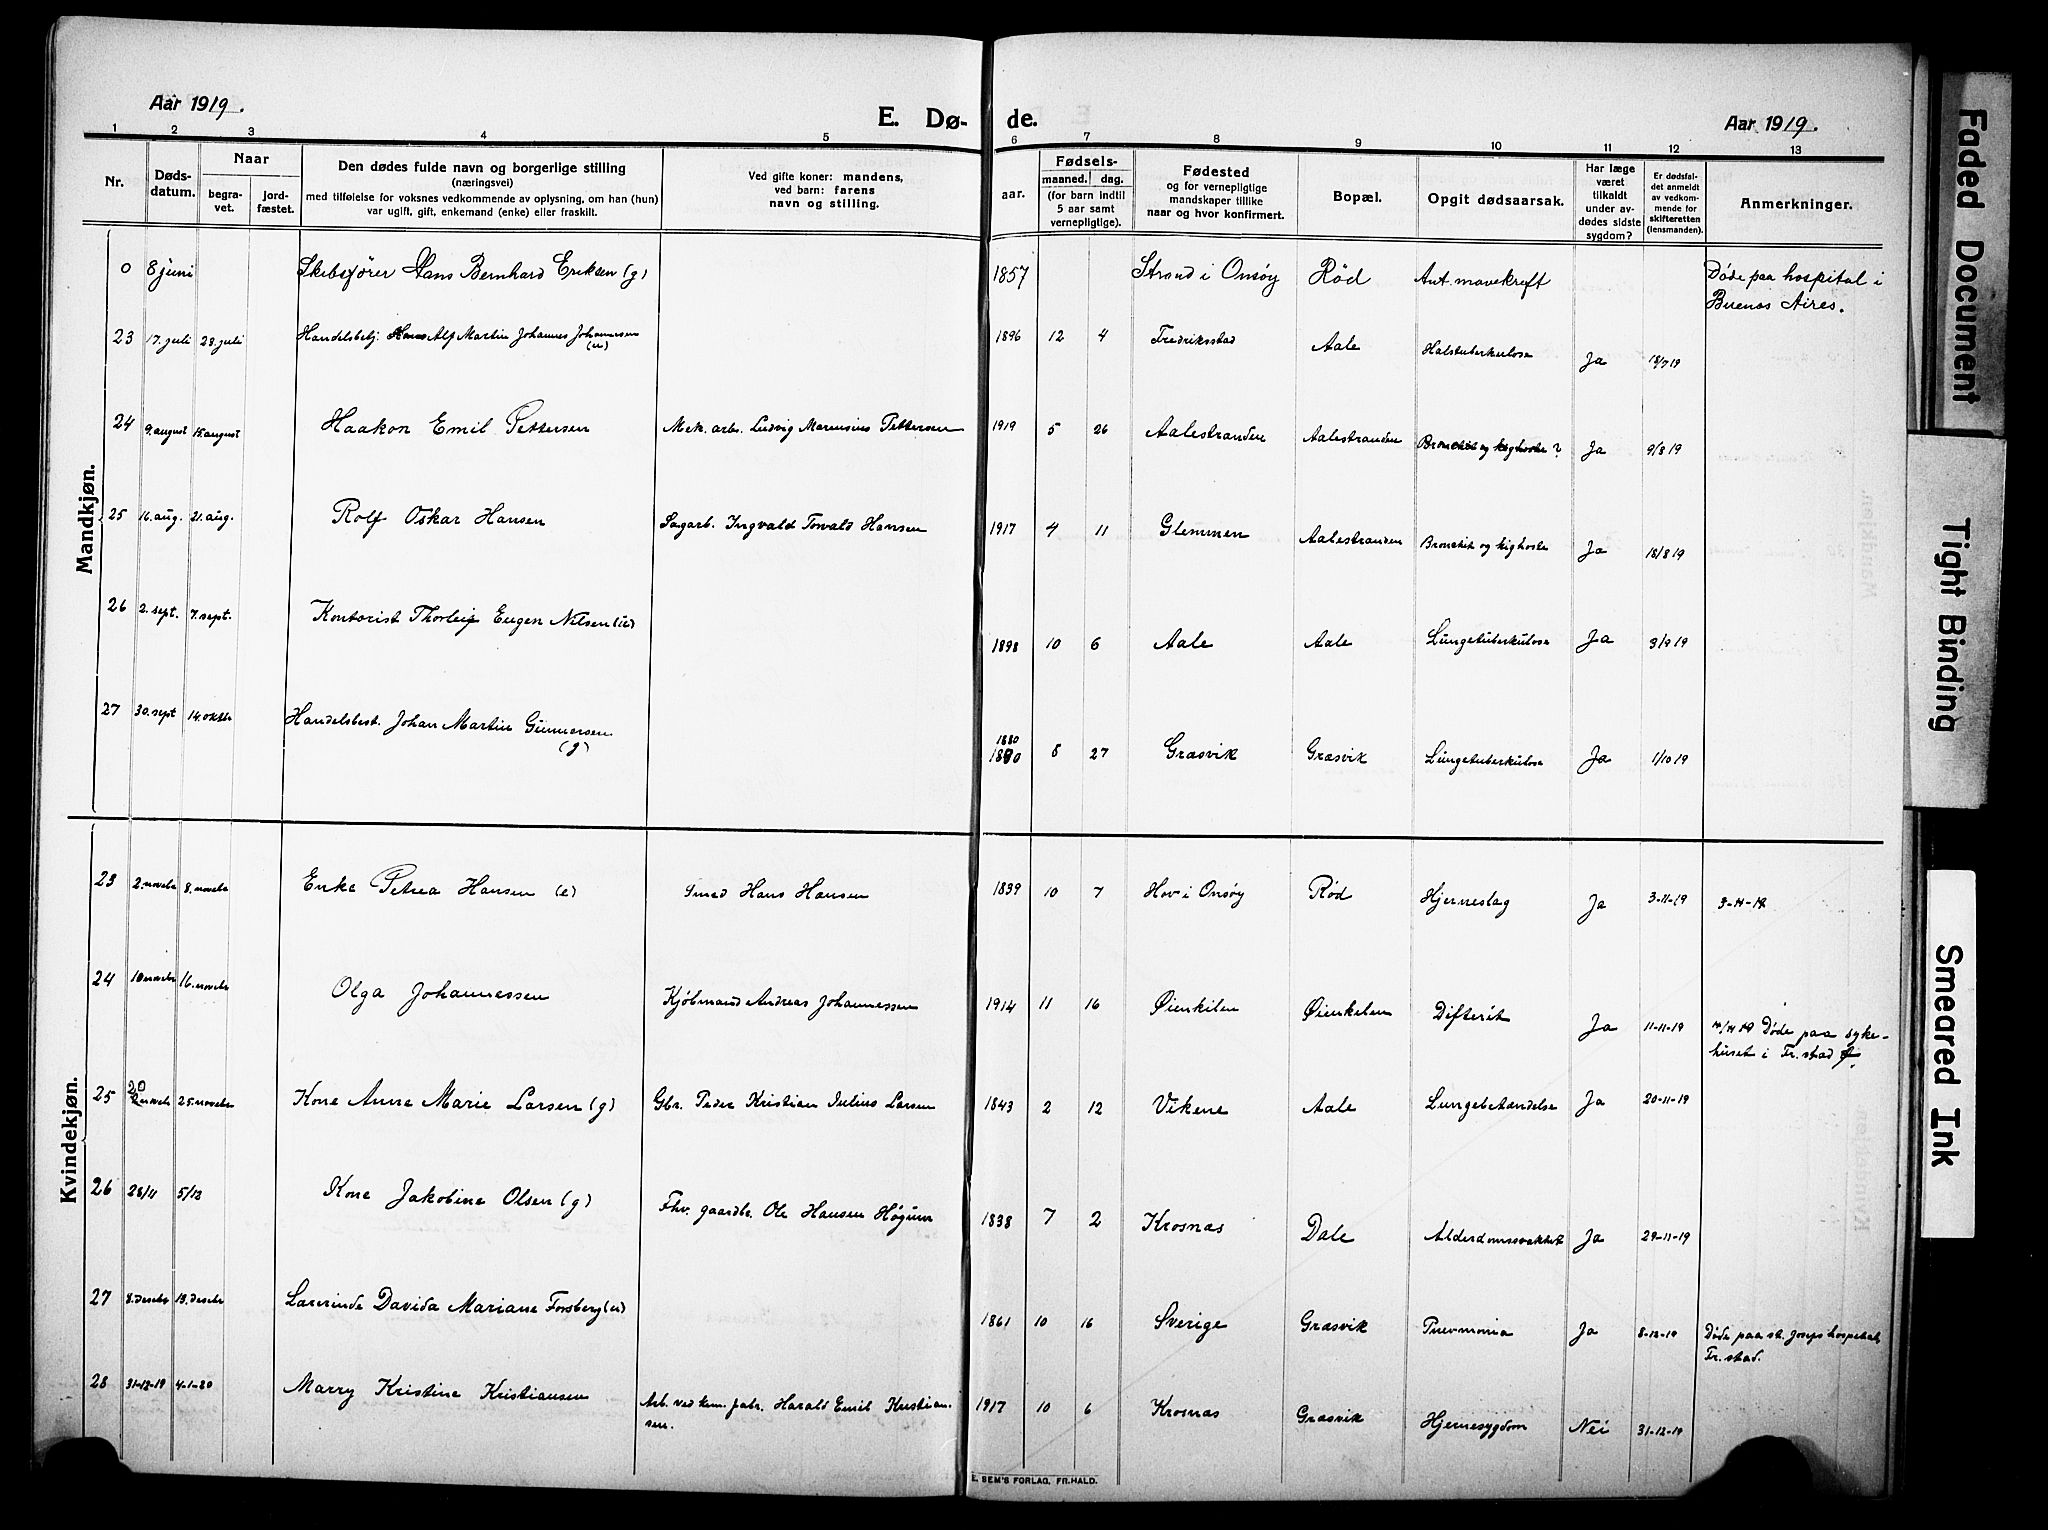 Aar 1919.
E. Dø-
de.
Aar 1919.
1 2 3 4 5 6 7 8 9 10 11 12 13
Nr.
Døds-
datum.
Naar
begra-
vet.
jord-
fæstet.
Den dødes fulde navn og borgerlige stilling
(næringsvei)
med tilføielse for voksnes vedkommende av oplysning, om han (hun)
var ugift, gift, enkemand (enke) eller fraskilt.
Ved gifte koner: mandens,
ved barn: farens
navn og stilling.
aar.
Fødsels-
maaned. dag.
(for barn indtil
5 aar samt
vernepligtige).
Fødested
og for vernepligtige
mandskaper tillike
naar og hvor konfirmert.
Bopæl.
Opgit dødsaarsak.
Har læge
været
tilkaldt
under av-
dødes sidste
sygdom?
Er dødsfal-
det anmeldt
av vedkom-
mende for
skifteretten
(lensmanden).
Anmerkninger.
Mandkjøn.
0 8 juni Skibsfører Hans Bernhard Eriksen (g) 1857 Strand i Onsøy Rød Ant. mavekreft Døde paa hospital i
Buenos Aires.
23 17. juli 23. juli Handelsbetj. Hans Alf Martin Johannes Johannesen 1896 12 4 Fredriksstad Aale Halstuberkulose Ja 18/7 19
(u)
24 9. august 15. august Haakon Emil Pettersen Mek. arb. Ludvig Marensius Pettersen 1919 5 26 Aalestranden Aalestranden Bronchit og kighoste? Ja 9/8 19
25 16. aug. 21. aug. Rolf Oskar Hansen Sagarb. Ingvald Torvald Hansen 1917 4 11 Glemmen Aalestranden Bronchit og kighoste Ja 18/8 19
26 2. sept. 7. sept. Kontorist Thorleif Eugen Nilsen (u) 1898 10 6 Aale Aale Lungetuberkulose Ja 3/9 19
27 30. sept 14. oktbr Handelsbest. Johan Martin Gunnersen
(g)
1880
1880 8 27 Græsvik Græsvik Lungetuberkulose Ja 1/10 19
Kvindekjøn.
23 2. novebr 8. novebr Enke Petrea Hansen (e) Smed Hans Hansen 1839 10 7 Hov i Onsøy Rød Hjerneslag Ja 3-11-19 3-11-19
24 10 novebr 16. novebr Olga Johannessen Kjøbmand Andreas Johannessen 1914 11 16 Øienkilen Øienkilen Difterit Ja 11-11-19 11/11 19 Døde paa syke-
huset i Fr. stad
25 20 novebr 25. novebr Kone Anne Marie Larsen (g) Gbr. Peder Kristian Julius Larsen 1843 2 12 Vikene Aale Lungebetændelse Ja 20-11-19
26 28/11 5/12 Kone Jakobine Olsen (g) Fhv. gaardbr. Ole Hansen Høgum 1838 7 2 Krosnæs Dale Alderdomssvakhet Ja 29-11-19
27 8. desebr 13. desebr Lærerinde Davida Mariane Forsberg (u) 1861 10 16 Sverige Græsvik Pnevmonia Ja 8-12-19 Døde paa st. Josephs hospital,
Fr. stad.
28 31-12-19 4-1-20 Marry Kristine Kristiansen Arb. ved kem. fabr. Harald Emil Kristian-
sen. 1917 10 6 Krosnæs Græsvik Hjernesygdom Nei 31-12-19
E. SEM'S FORLAG, FR.HALD.
Faded Document
Tight Binding
Smeared Ink